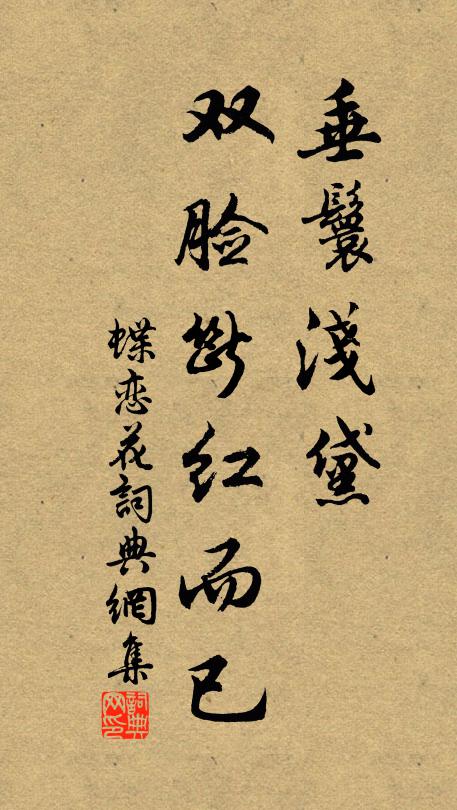 垂鬟淺黛
双脸断红而已
蝶恋花詞典網集
詞典网印